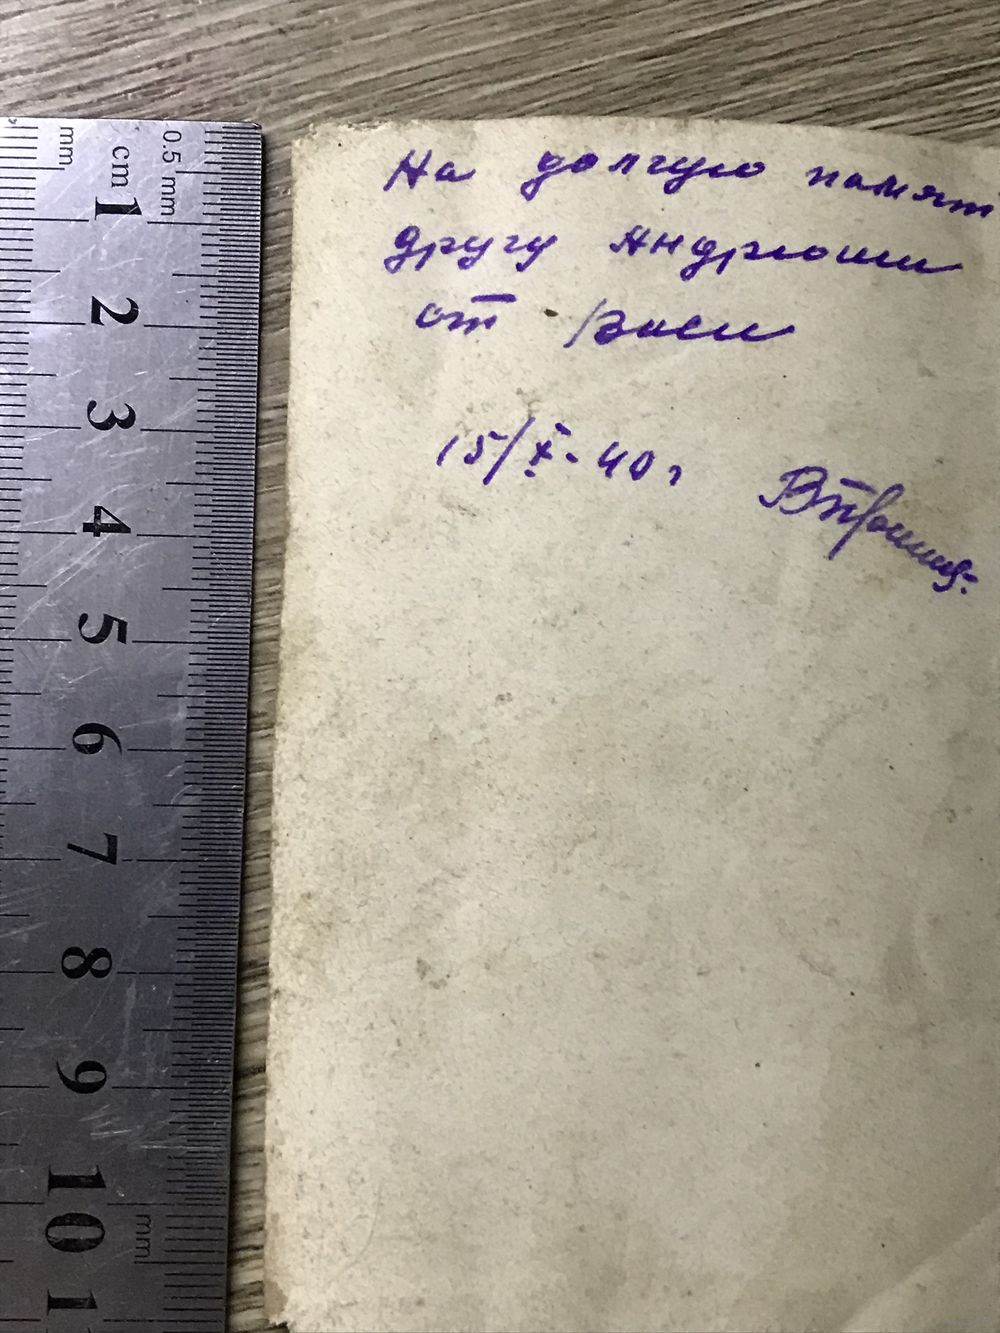 mm
0.5 mm
cm
1
2
3
4
5
6
7
8
9
10
mm
1
На долгую памят
другу Андрюши
от Васи
15/X-40 г